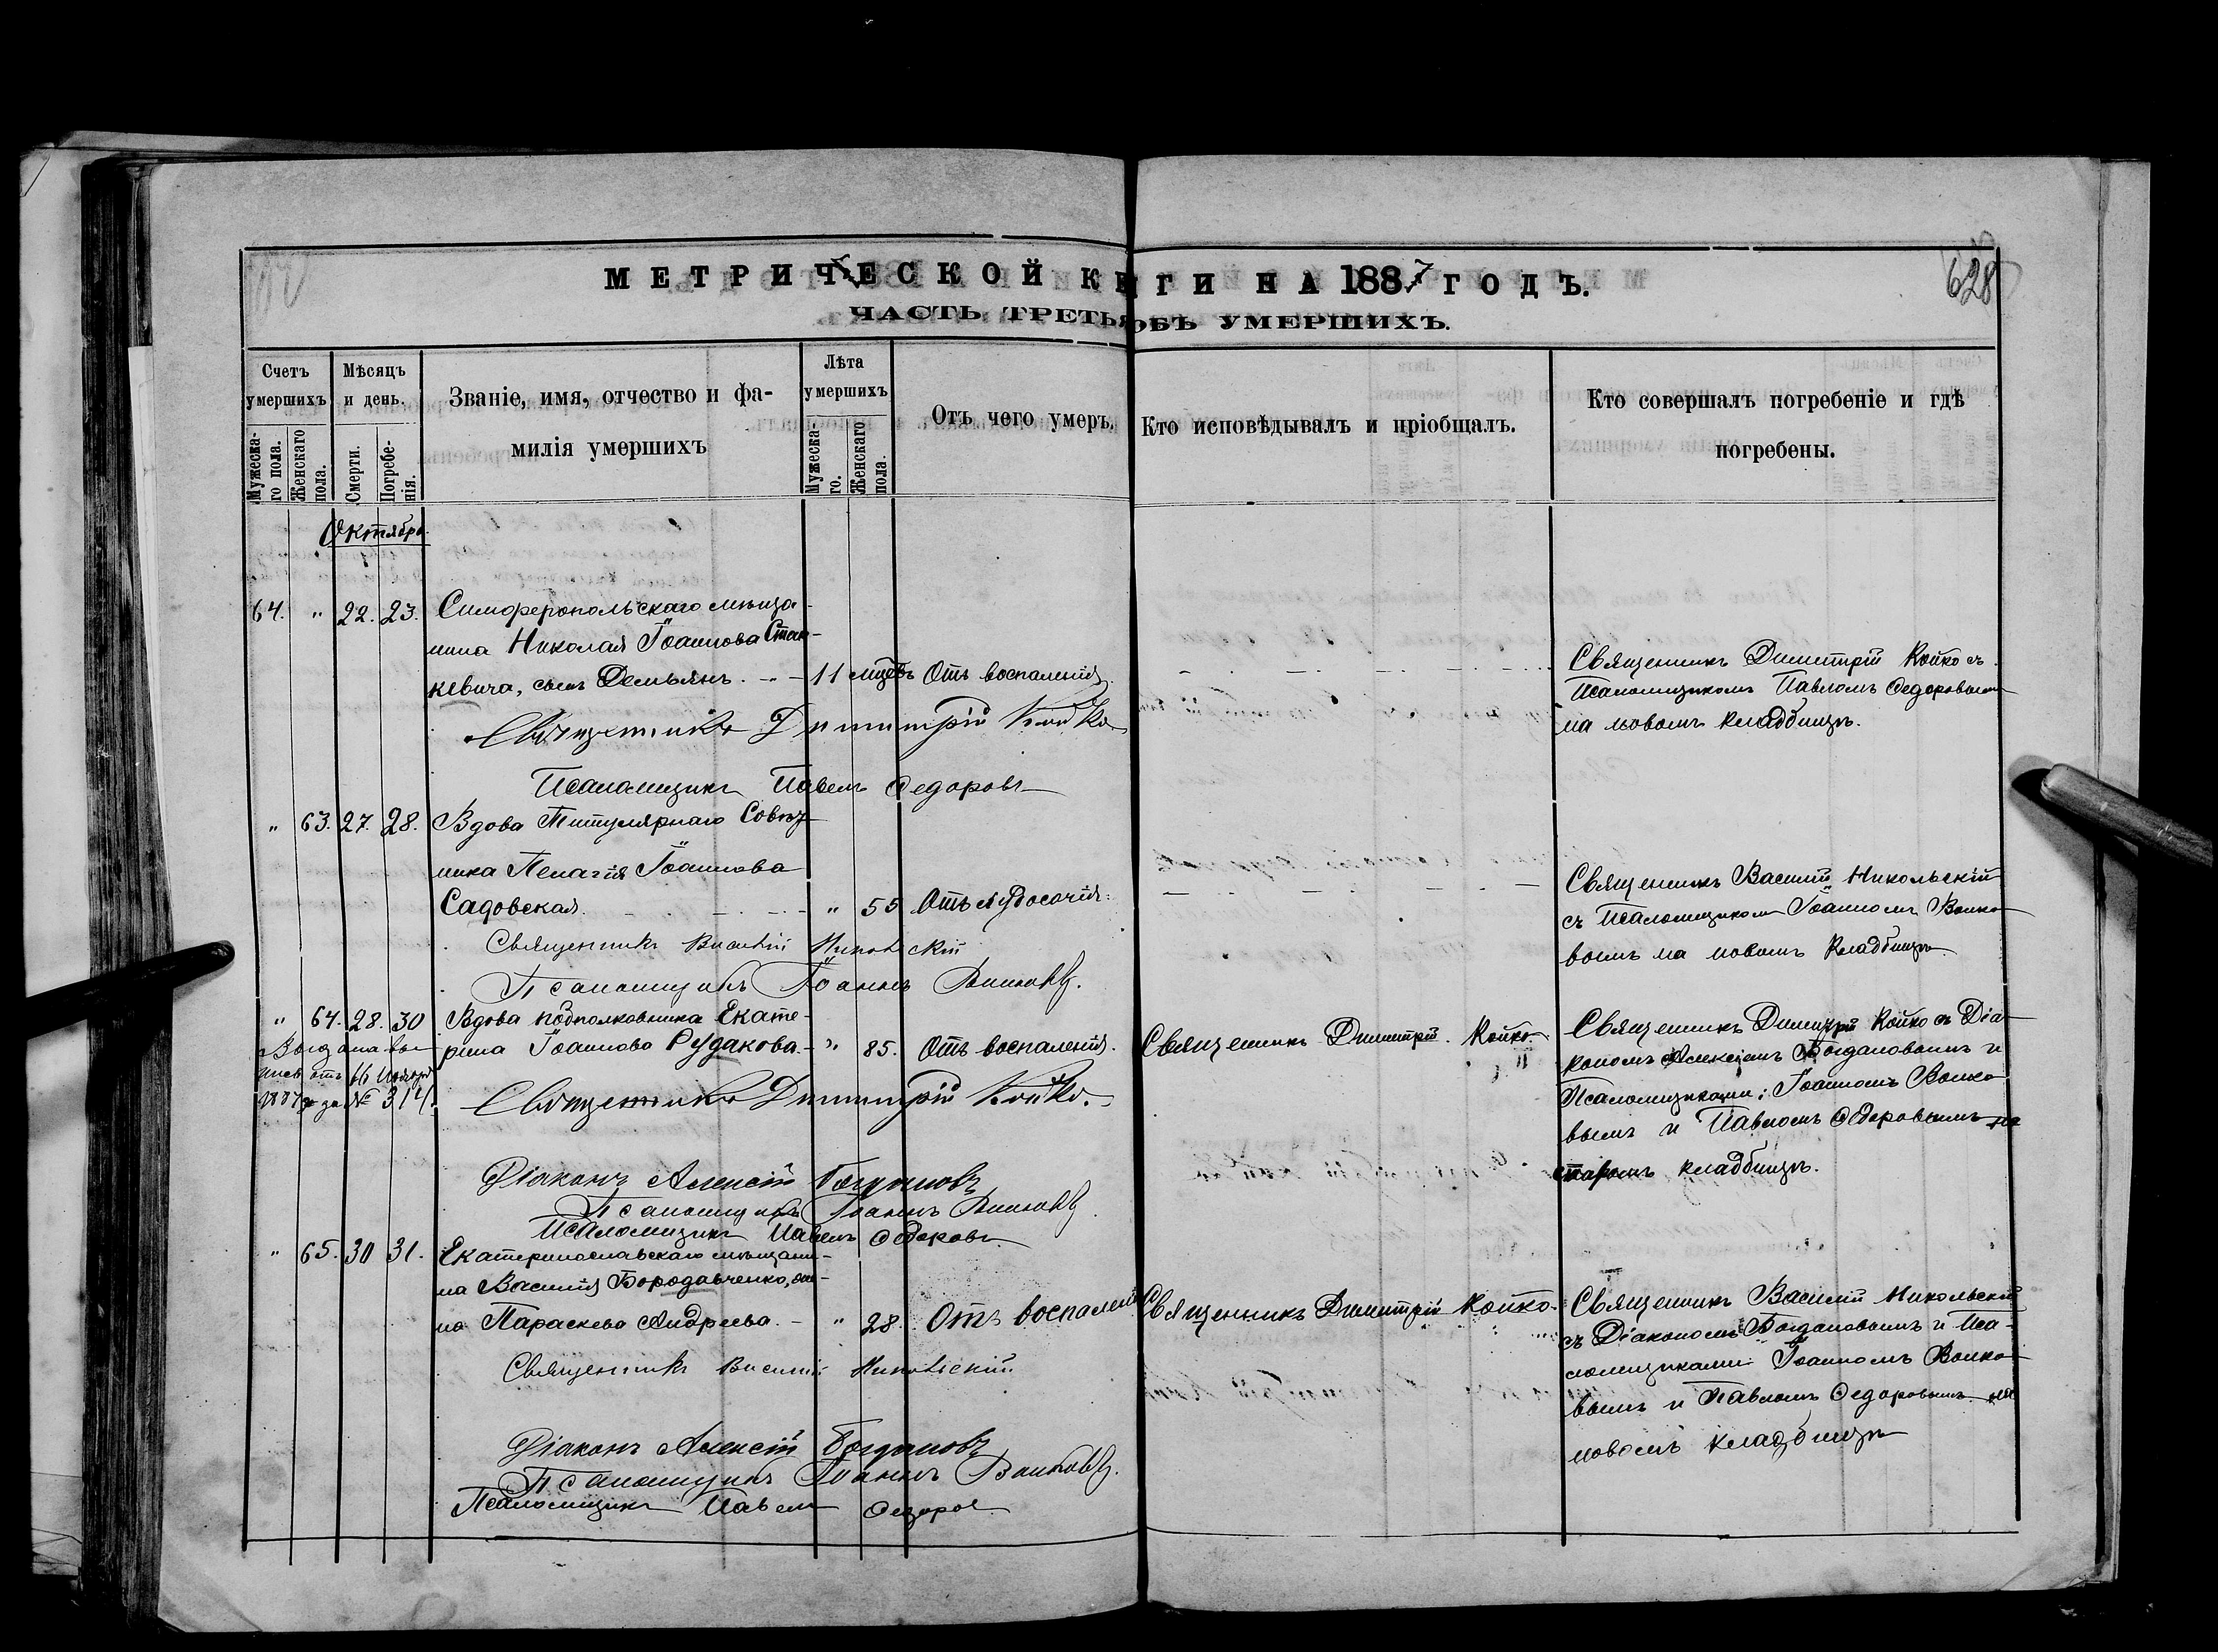 МЕТРИЧЕСКОЙ КНИГИ НА 1887 ГОДЪ.
628
ЧАСТЬ ТРЕТЬЯ ОБЪ УМЕРШИХЪ.
Счетъ умершихъ
Мужеска-
го пола.
Женскаго
пола.
Мѣсяцъ
и день.
Смерти.
Погребе-
нія.
Званіе, имя, отчество и фа-
милія умершихъ
Лѣта
умершихъ
Мужеска-
го.
Женскаго
пола.
Отъ чего умеръ.
Кто исповѣдывалъ и пріобщалъ.
Кто совершалъ погребеніе и гдѣ
погребены.
Октябрь
64. " 22. 23. Симферопольскаго мѣща-
нина Николая Іоаннова Стан-
кевича, сынъ Демьянъ. - 11 мцевъ Отъ воспаленія.
Священникъ Димитрій Койко съ
Псаломщикомъ Павломъ Федоровымъ
на новомъ кладбищѣ.
Священникъ Димитрій Койко
Псаломщикъ Павелъ Федоровъ
" 63. 27. 28. Вдова Титулярнаго Совѣт-
ника Пелагія Іоаннова
Садовская. " 55 Отъ худосочія.
Священникъ Василій Никольскій
съ Псаломщикомъ Іоанномъ Волко-
вымъ на новомъ кладбищѣ.
Священникъ Василій Никольскій
Псаломщикъ Іоаннъ Волковъ.
" 64. 28. 30 Вдова подполковника Екате-
рина Іоаннова Рудакова. - " 85. Отъ воспаленія. Священникъ Димитрій Койко.
Выдана вы-
пись отъ 16 Ноября
1887 г. за № 314.
Священникъ Димитрій Койко съ Діа-
кономъ Алексіемъ Богдановымъ и
Псаломщиками: Іоанномъ Волко-
вымъ и Павломъ Федоровымъ на
старомъ кладбищѣ.
Священникъ Димитрій Койко.
Діаконъ Алексій Богдановъ
Псаломщикъ Іоаннъ Волковъ
Псаломщикъ Павелъ Федоровъ
" 65. 30 31. Екатеринославскаго мѣщани-
на Василія Бородавченко, же-
на Параскева Андреева. - " 28. Отъ воспаленія Священникъ Димитрій Койко.
Священникъ Василій Никольскій
съ Діакономъ Богдановымъ и Пса-
ломщиками Іоанномъ Волко-
вымъ и Павломъ Федоровымъ на
новомъ кладбищѣ
Священникъ Василій Никольскій.
Діаконъ Алексій Богдановъ
Псаломщикъ Іоаннъ Волковъ.
Псаломщикъ Павелъ Федоров.